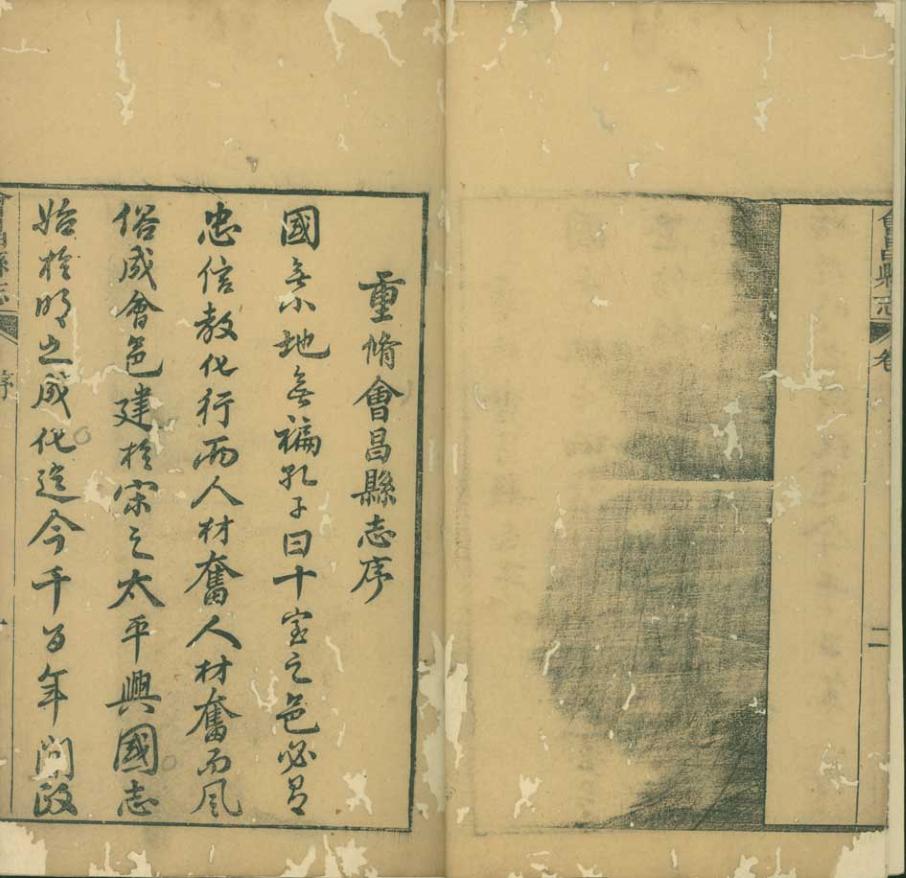 會昌縣志 卷
二
重脩會昌縣志序
國無小地無褊孔子曰十室之邑必有
忠信教化行而人材奮人材奮而風
俗成會邑建於宋之太平興國志
始於明之成化迄今千百年間政
會昌縣志 序